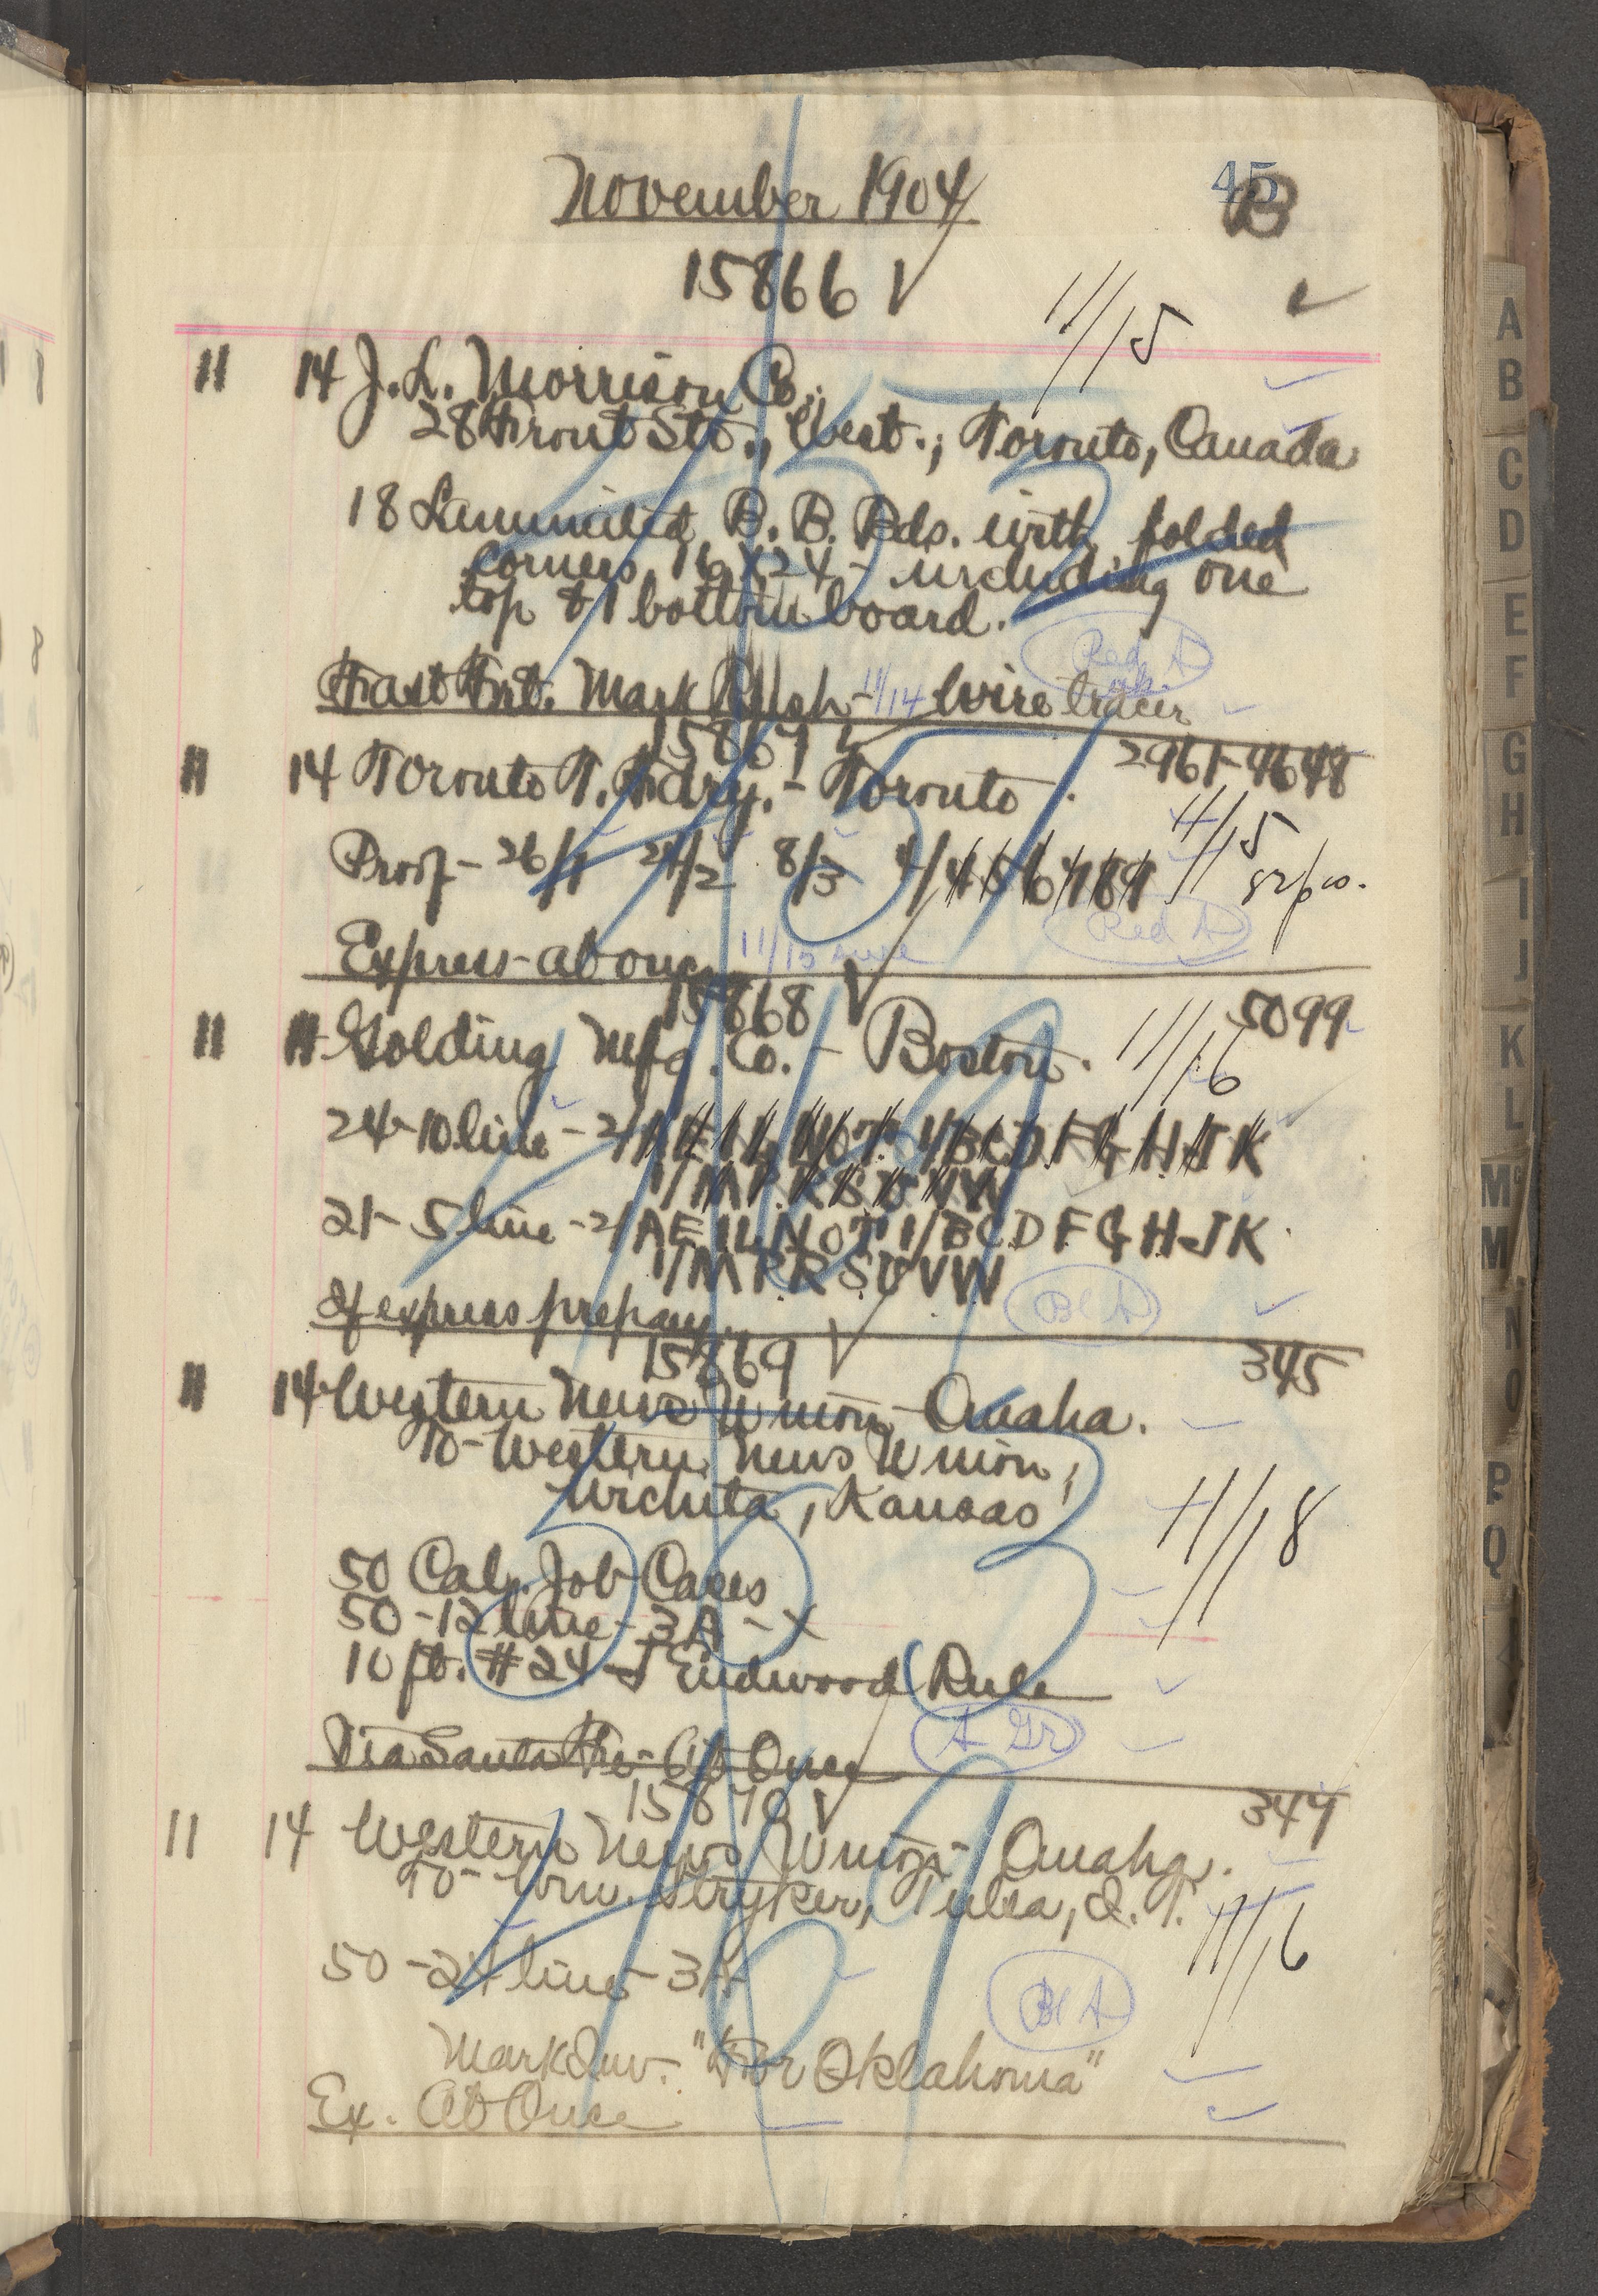 45
B
November 1904
15866 ✓
11/15
11 14 J. L. Morrison Co.,
28 Front St., West.; Toronto, Canada
18 B. B. Bds. with folded
corners 16 x 24 - including one
top & 1 bottom board.
Red A
Fast Frt. Mark Rush - 11/14 Wire tracer
15867 ✓
2961-4648
11 14 Toronto T. Fdry. - Toronto.
11/15
Proof - 26/1 24/2 8/3 4/4 5 6 7 8 9
Red A
Express at once 11/15
15868 ✓
5099
11 14 Golding Mfg. Co. - Boston.
11/16
24-10 line - 2/A E I L N O T 1/B C D F G H J K
1/M P R S U V W
21- 5 line - 2/A E I L N O T 1/B C D F G H J K
1/M P R S U V W
Bl A
If express prepay.
15869 ✓
345
11 14 Western News Union - Omaha.
To - Western News Union,
Wichita, Kansas
11/18
50 Cal. Job Cases
50 - 12 line - 3A - X
10 ft. #24 - Endwood Rule
A Gr
Via Santa Fe - At Once
15870 ✓
347
11 14 Western News Union - Omaha.
To - Wm. Stryker, Tulsa, I. T.
11/16
50 - 24 line - 3A
Bl A
Mark Inv. - "For Oklahoma"
Ex. At Once
A
B
C
D
E
F
G
H
I
J
K
L
Mc
M
N
O
P
Q